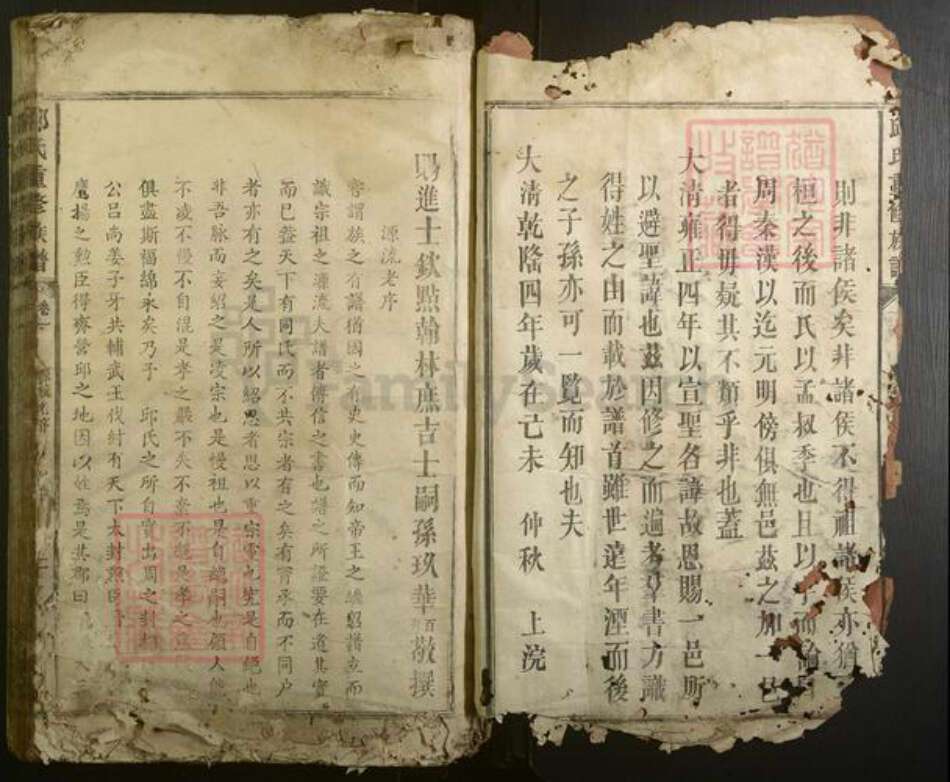 則非諸侯矣非諸侯不得祖諸侯亦猶
桓之後而氏以孟叔季也且以
周秦漢以迄元明傍俱無邑茲之加一邑
者得毋疑其不類乎非也蓋
大清雍正四年以宣聖名諱故恩賜一邑所
以避聖諱也茲因修之而遍考羣書方識
得姓之由而載於譜首雖世遠年湮而後
之子孫亦可一覽而知也夫
大清乾隆四年歲在己未 仲秋 上浣
賜進士欽點翰林庶吉士嗣孫玖華百拜敬撰
源流老序
嘗謂族之有譜猶國之有史史傳而知帝王之繼紹譜立而
識宗祖之源流夫譜者傳信之書也譜之所證要在道其實
而已蓋天下有同氏而不共宗者有之矣有胥承而不同戶
者亦有之矣是人所以紹思者思以重宗
非吾脉而妄紹之是凌宗也是慢祖也是自絕嗣也顧人能
不凌不慢不自混是孝之嚴不失不棄不
俱盡斯福綿永矣乃予 邱氏之所自實出周之
公呂尚姜子牙共輔武王伐紂有天下大封
鷹揚之勲臣得齊營邱之地因以姓焉是其郡曰
邱氏重修族譜
卷
FamilySearch